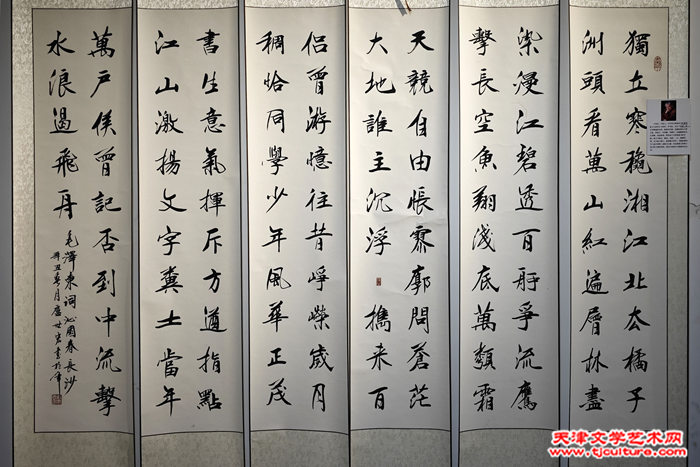 獨立寒穐湘江北去橘子
洲頭看萬山紅遍層林盡
染漫江碧透百舸爭流鷹
擊長空魚翔淺底萬類霜
天競自由悵寥廓問蒼茫
大地誰主沉浮 攜來百
侶曾游憶往昔崢嶸歲月
稠恰同學少年風華正茂
書生意氣揮斥方遒指點
江山激揚文字糞土當年
萬戶侯曾記否到中流擊
水浪遏飛舟
毛澤東詞沁園春長沙
辛丑春月盧世書於津
天津文学艺术网
www.tjculture.com